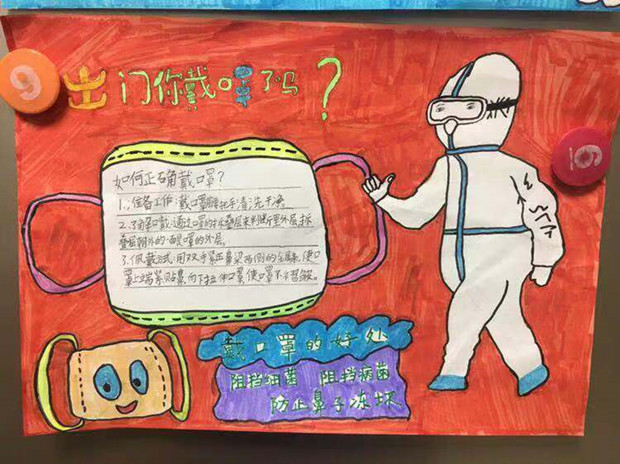 出门你戴口罩了吗？
9
9
如何正确戴口罩？
1.准备工作:戴口罩前把手清洗干净
2.了解口罩:通过口罩的折叠层来判断里外层,折
叠层朝外的一面是口罩的外层。
3.佩戴方式:用双手紧压鼻梁两侧的金属条,使口
罩上端紧贴鼻,向下拉伸口罩,使口罩不留皱褶。
戴口罩的好处
阻挡细菌 阻挡病菌
防止鼻子冻坏